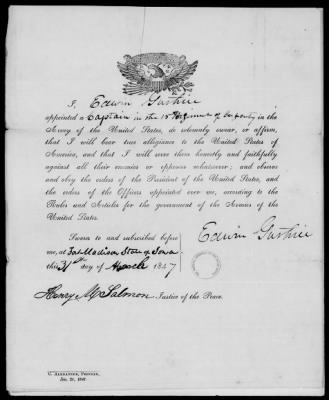 I, Edwin Guthrie
appointed a Captain in the 15 Regiment of Infantry in the
Army of the United States, do solemnly swear, or affirm,
that I will bear true allegiance to the United States of
America, and that I will serve them honestly and faithfully
against all their enemies or opposers whatsoever; and observe
and obey the orders of the President of the United States, and
the orders of the Officers appointed over me, according to the
Rules and Articles for the government of the Armies of the
United States.
Edwin Guthrie
Sworn to and subscribed before
me, at Fort Madison State of Iowa
this 31st day of March 1847
Henry M Salmon Justice of the Peace.
C. Alexander, Printer,
1847.